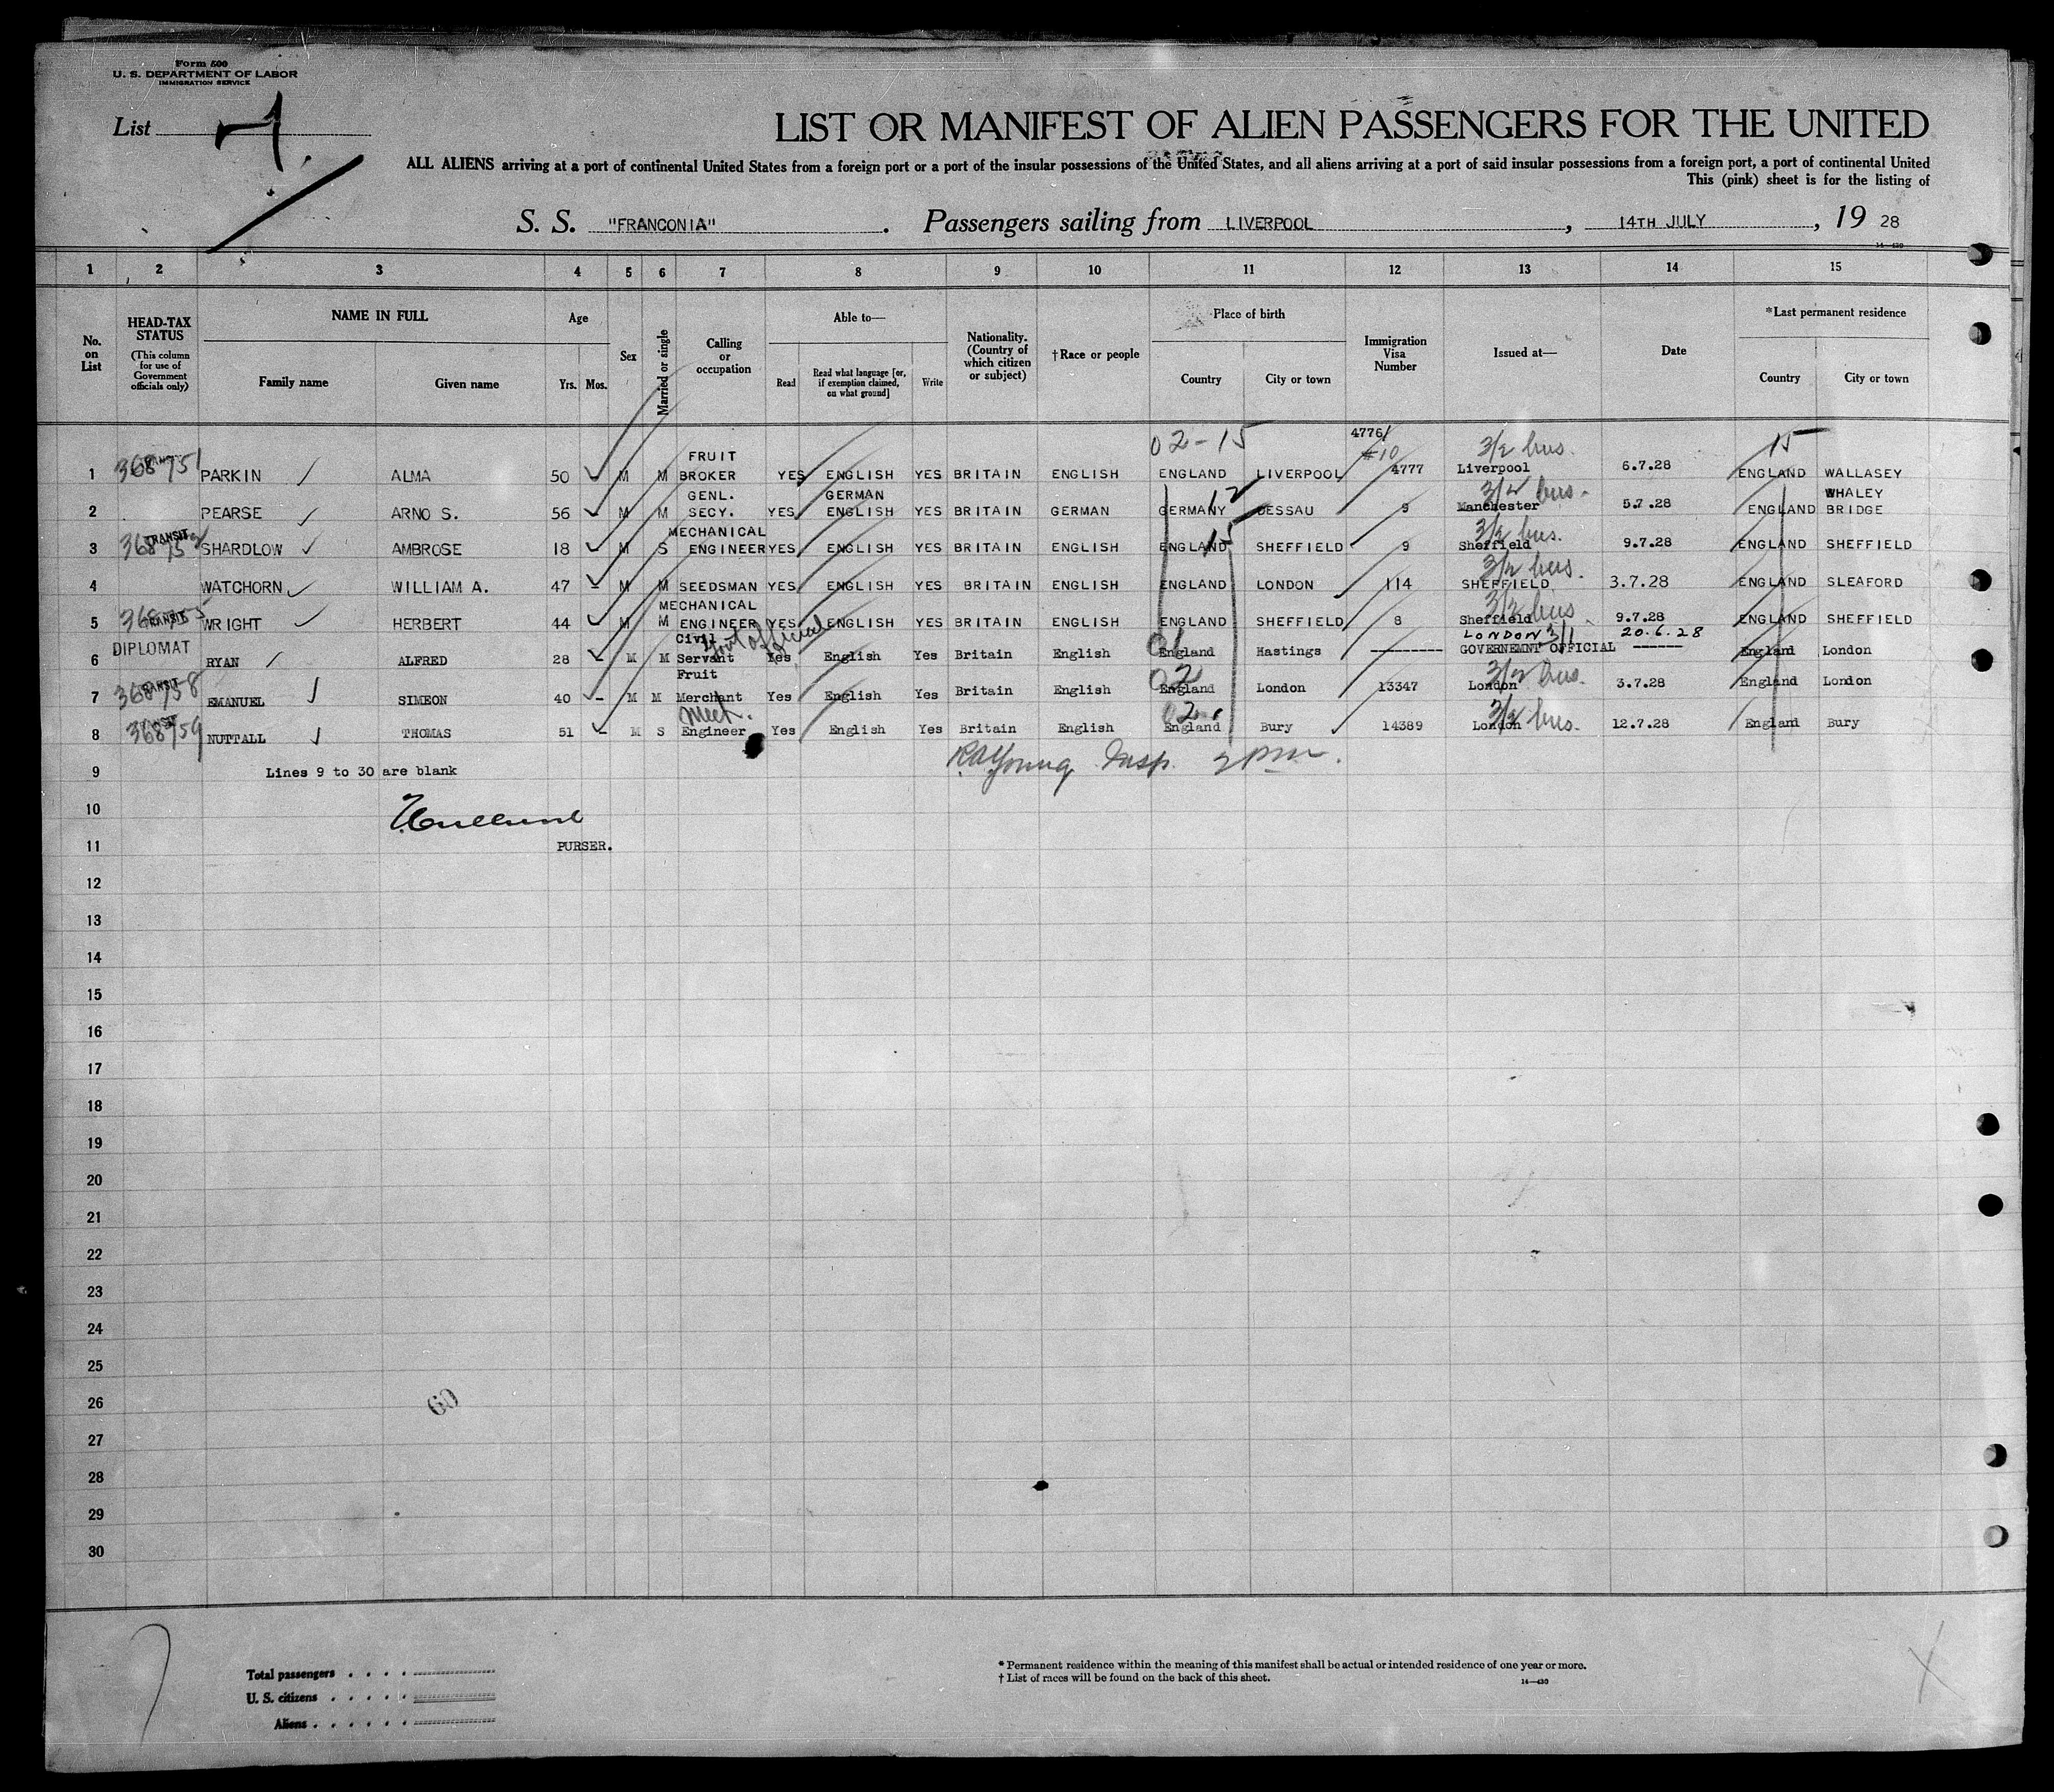 Form 500
U. S. DEPARTMENT OF LABOR
IMMIGRATION SERVICE
List
LIST OR MANIFEST OF ALIEN PASSENGERS FOR THE UNITED
ALL ALIENS arriving at a port of continental United States from a foreign port or a port of the insular possessions of the United States, and all aliens arriving at a port of said insular possessions from a foreign port, a port of continental United
This (pink) sheet is for the listing of
S. S. "FRANCONIA". Passengers sailing from LIVERPOOL, 14TH JULY, 19 28
1 2 3 4 5 6 7 8 9 10 11 12 13 14 15
No. on List
HEAD-TAX STATUS (This column for use of Government officials only)
NAME IN FULL
Family name Given name
Age
Yrs. Mos.
Sex
Married or single
Calling or occupation
Able to—
Read Read what language [or, if exemption claimed, on what ground] Write
Nationality. (Country of which citizen or subject)
†Race or people
Place of birth
Country City or town
Immigration Visa Number
Issued at—
Date
*Last permanent residence
Country City or town
02-15 4776/ 3/2 bus. 15
1 368751 PARKIN ALMA 50 M M FRUIT BROKER YES ENGLISH YES BRITAIN ENGLISH ENGLAND LIVERPOOL #10 4777 Liverpool 6.7.28 ENGLAND WALLASEY
2 PEARSE ARNO S. 56 - M M GENL. SECY. YES GERMAN ENGLISH YES BRITAIN GERMAN GERMANY 12 DESSAU 9 3/2 bus. Manchester 5.7.28 ENGLAND WHALEY BRIDGE
3 TRANSIT SHARDLOW AMBROSE 18 M S MECHANICAL ENGINEER YES ENGLISH YES BRITAIN ENGLISH ENGLAND 15 SHEFFIELD 9 3/2 bus. Sheffield 9.7.28 ENGLAND SHEFFIELD
4 WATCHORN WILLIAM A. 47 - M M SEEDSMAN YES ENGLISH YES BRITAIN ENGLISH ENGLAND LONDON 114 3/2 bus. SHEFFIELD 3.7.28 ENGLAND SLEAFORD
5 TRANSIT WRIGHT HERBERT 44 M M MECHANICAL ENGINEER YES ENGLISH YES BRITAIN ENGLISH ENGLAND SHEFFIELD 8 3/2 bus Sheffield 9.7.28 ENGLAND SHEFFIELD
6 DIPLOMAT RYAN ALFRED 28 - M M Civil Servant Govt official Yes English Yes Britain English 01 England Hastings --------- LONDON 3/1 GOVERNEMNT OFFICIAL 20.6.28 ------ England London
7 368758 TRANSIT EMANUEL SIMEON 40 - M M Fruit Merchant Yes English Yes Britain English 02 England London 13347 3/2 bus. London 3.7.28 England London
8 368759 NUTTALL THOMAS 51 - M S Mech. Engineer Yes English Yes Britain English 02 England Bury 14389 3/2 bus. London 12.7.28 England Bury
9 Lines 9 to 30 are blank Young Insp.
10
11 PURSER.
12
13
14
15
16
17
18
19
20
21
22
23
24
25
26 60
27
28
29
30
Total passengers
U. S. citizens
Aliens
* Permanent residence within the meaning of this manifest shall be actual or intended residence of one year or more.
† List of races will be found on the back of this sheet.
14—430